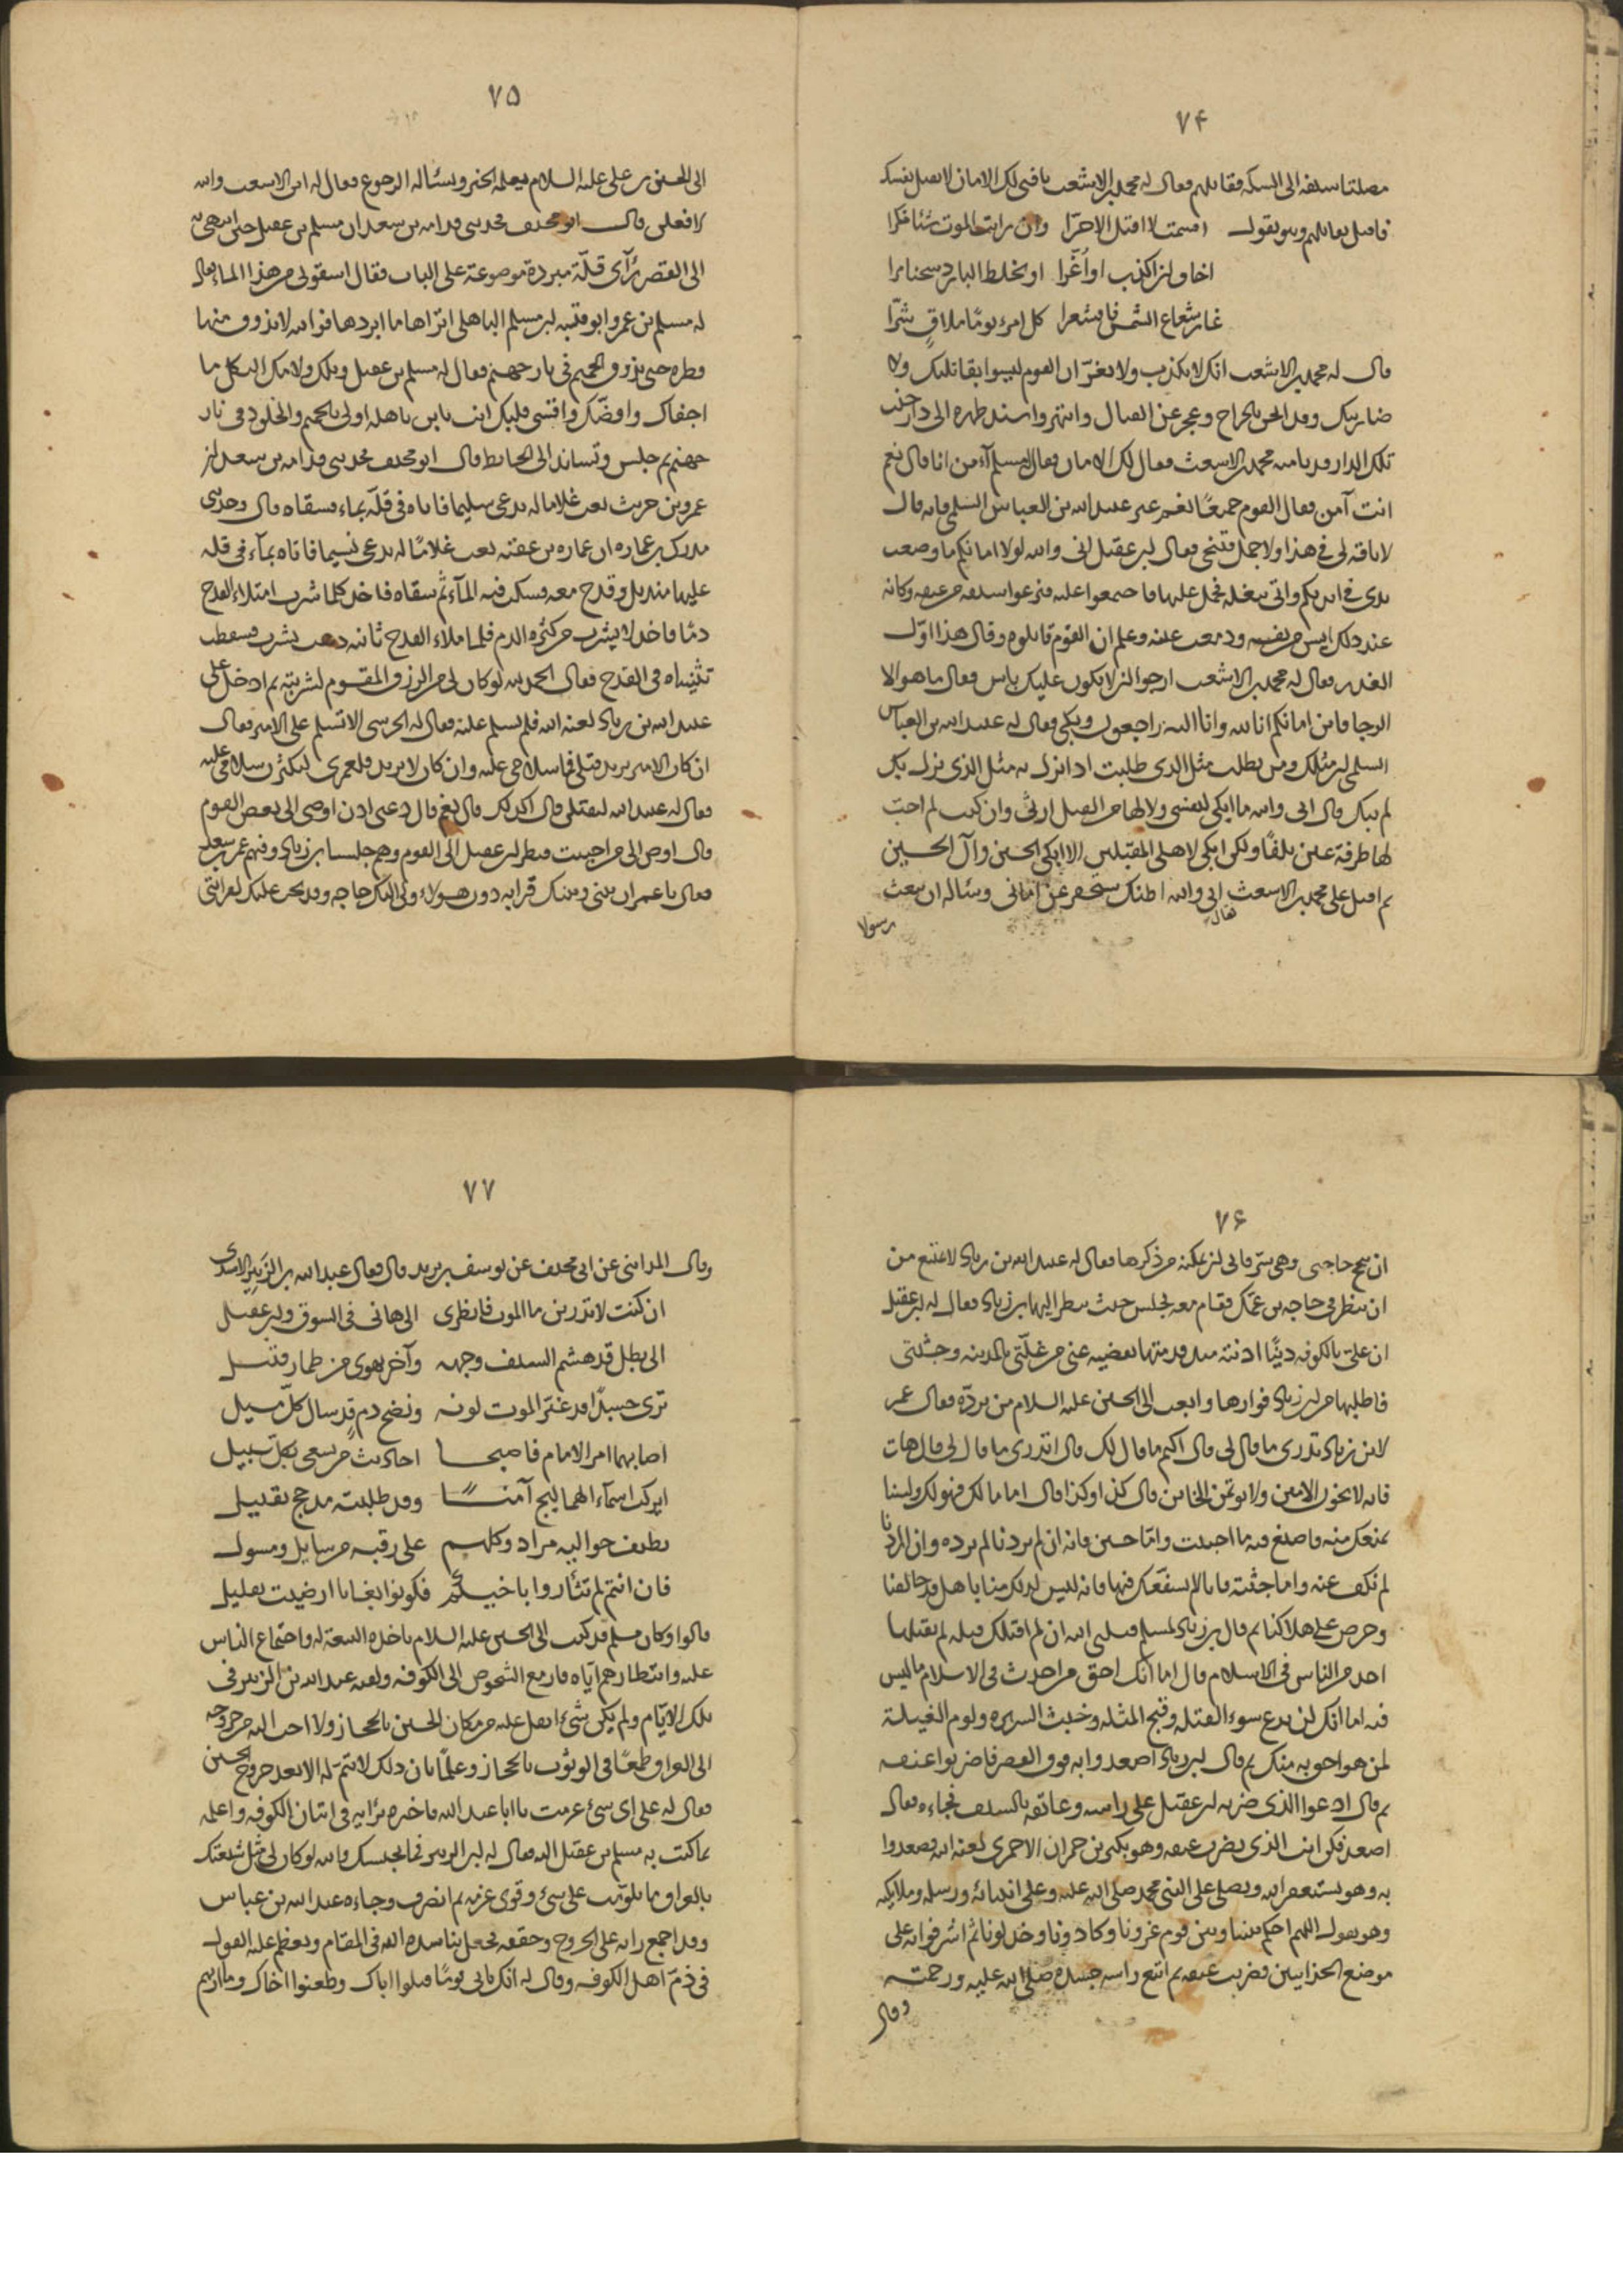 ۷۴
مصلتا سيفه الى السكة فقاتلهم فقال له محمد بن الاشعث يا فتى لك الامان لا تقتل نفسك
فاقبل يقاتلهم وهو يقول اقسمت لا اقتل الا حرّا وان رايت الموت شيئا نكرا
اخاف ان اكذب او اُغَرّا او يخلط البارد سخنا مرا
غار شعاع الشمس فاستعرا كل امرء يومًا ملاقٍ شرّا
قال له محمد بن الاشعث انك لا تكذب ولا تغرّ ان القوم ليسوا بقاتليك ولا
ضاربيك وقد اثخن بالجراح وعجز عن القتال وانتهر واسند ظهره الى دار جنب
تلك الدار فدنا منه محمد بن الاشعث فقال لك الامان فقال له مسلم آمن انا قال نعم
انت آمن فقال القوم جميعًا نعم غير عبيد الله بن العباس السلمى فانه قال
لا ناقة لى فى هذا ولا جمل فتنحى فقال ابن عقيل انى والله لولا امانكم ما وضعت
يدى فى ايديكم واتى ببغلة فحمل عليها فاجتمعوا عليه فنزعوا سيفه من عنقه وكانه
عند ذلك ايس من نفسه ودمعت عينه وعلم ان القوم قاتلوه وقال هذا اوّل
الغدر فقال له محمد بن الاشعث ارجو ان لا يكون عليك باس فقال ما هو الا
الرجا فاين امانكم انا لله وانا اليه راجعون وبكى فقال له عبيد الله بن العباس
السلمى ان مثلك ومن يطلب مثل الذى طلبت اذا نزل به مثل الذى نزل بك
لم يبك قال انى والله ما ابكى لنفسى ولا لها من القتل ارثى وان كنت لم احب
لها طرفة عين تلفًا ولكن ابكى لاهلى المقبلين الىّ ابكى الحسين وآل الحسين
ثم اقبل على محمد بن الاشعث فقال انى والله اظنك ستعجز عن امانى وسئاله ان يبعث
رسولا
۷۵
الى الحسين بن على عليه السلام يعلمه الخبر ويسئاله الرجوع فقال له ابن الاشعث والله
لافعلن قال ابو مخنف فحدثنى قدامه بن سعد ان مسلم بن عقيل حين انتهى به
الى القصر رآى قلّة مبردة موضوعة على الباب فقال اسقونى من هذا الماء فقال
له مسلم بن عمرو ابو قتيبه بن مسلم الباهلى اتراها ما ابردها فوالله لا تذوق منها
قطره حتى تذوق الحميم فى نار جهنم فقال له مسلم بن عقيل ويلك ولامك الثكل ما
اجفاك وافضّك واقسى قلبك انت يا بن باهله اولى بالحميم والخلود فى نار
جهنم ثم جلس وتساند الى الحائط قال ابو مخنف فحدثنى قدامه بن سعد ان
عمرو بن حريث بعث غلاما له يدعى سليما فاتاه فى قلّة بماء فسقاه قال وحدثنى
مدرك بن عماره ان عماره بن عقبه بعث غلامًا له يدعى نسيما فاتاه بمآء فى قله
عليها منديل وقدح معه فسكب فيه المآء ثم سقاه فاخذ كلما شرب امتلاء القدح
دمًا فاخذ لا يشرب من كثره الدم فلما ملاء القدح ثانيه ذهب يشرب فسقطت
ثنيتاه فى القدح فقال الحمد لله لو كان لى من الرزق المقسوم لشربته ثم ادخل على
عبيد الله بن زياد لعنه الله فلم يسلم عليه فقال له الحرسى الا تسلم على الامير فقال
ان كان الامير يريد قتلى فما سلامى عليه وان كان لا يريد فلعمرى ليكثرن سلامى عليه
فقال له عبيد الله لتقتلن قال اكذلك قال نعم قال دعنى اذن اوصى الى بعض القوم
قال اوص الى من احببت فنظر ابن عقيل الى القوم وهم جلساء بن زياد وفيهم عمر بن سعد
فقال يا عمر ان بينى وبينك قرابه دون هولاء ولى اليك حاجه وقد يجب عليك لقرابتى
۷۶
ان تنجح حاجتى وهى سرّ فابى ان يمكنه من ذكرها فقال له عبيد الله بن زياد لا تمتنع من
ان تنظر فى حاجه بن عمّك فقام معه فجلس حيث ينظر اليهما بن زياد فقال له بن عقيل
ان علىّ بالكوفه دينًا ادنته مند قدمتها تقضيه عنى من غلّتى بالمدينه وجثتى
فاطلبها من ابن زياد فوارها وابعث الى الحسين عليه السلام من يردّه فقال عمر
لابن زياد تدرى ما قال لى قال اكتم ما قال لك قال اتدرى ما قال لى قال هات
فانه لا يخون الامين ولا يوتمن الخاين قال كذا وكذا قال اما مالك فهو لك ولسنا
نمنعك منه فاصنع فيه ما احببت واما حسين فانه ان لم يردنا لم نرده وان ارادنا
لم نكف عنه واما جثته فانا لا نشفعك فيها فانه ليس لذلك منا باهل قد خالفنا
وحرص على هلاكنا ثم قال بن زياد لمسلم قتلنى الله ان لم اقتلك قتله لم يقتلها
احد من الناس فى الاسلام قال اما انك احق من احدث فى الاسلام ما ليس
فيه اما انك لن تدع سوء القتله وقبح المثله وخبث السريره ولوم الغيلة
لمن هو احق به منك ثم قال ابن زياد اصعدوا به فوق القصر فاضربوا عنقه
ثم قال ادعوا الذى ضربه ابن عقيل على راسه وعاتقه بالسيف فجاءه فقال
اصعد فكن انت الذى يضرب عنقه وهو بكير بن حمران الاحمرى لعنه الله فصعدوا
به وهو يستغفر الله ويصلى على النبى محمد صلى الله عليه وعلى انبيائه ورسله وملايكته
وهو يقول اللهم احكم بيننا وبين قوم غرونا وكادونا وخذلونا ثم اشرفوا به على
موضع الحذايين فضربت عنقه ثم اتبع راسه جسده صلى الله عليه ورحمته
وقال
۷۷
وقال المدائنى عن ابى مخنف عن يوسف بن يزيد قال فقال عبد الله بن الزَبِير الاسدى
ان كنت لا تدرين ما الموت فانظرى الى هانى فى السوق وابن عقيل
الى بطل قد هشم السيف وجهه وآخر يهوى من طمار قتيل
ترى جسدًا قد غيّر الموت لونه ونضح دمٍ قد سال كلّ مسيل
اصابهما امر الامام فاصبحا احاديث من يسعى بكل سبيل
ايركب اسمآء الهماليج آمنًا وقد طلبته مذحج بقتيل
تطيف حواليه مراد وكلهم على رقبه من سايل ومسول
فان انتم لم تثاروا باخيكم فكونوا بغايا ارضيت بقليل
قالوا وكان مسلم قد كتب الى الحسين عليه السلام باخذه البيعة له واجتماع الناس
عليه وانتظارهم اياه فازمع الشخوص الى الكوفه ولقيه عبد الله بن الزبير فى
تلك الايّام ولم يكن شىء اثقل عليه من مكان الحسين بالحجاز ولا احب اليه من خروجه
الى العراق طمعًا فى الوثوب بالحجاز وعلمًا بان ذلك لا يتم له الا بعد خروج الحسين
فقال له على اى شىء عزمت يا ابا عبد الله فاخبره برايه فى اتيان الكوفه واعلمه
بما كتب به مسلم بن عقيل اليه فقال له ابن الزبير فما يحبسك فوالله لو كان لى مثل شيعتك
بالعراق ما تلومت على شىء وقوى عزمه ثم انصرف وجاءه عبد الله بن عباس
وقد اجمع رايه على الخروج وحققه فجعل يناشده الله فى المقام ويعظم عليه القول
فى ذمّ اهل الكوفه وقال له انك تاتى قومًا قتلوا اباك وطعنوا اخاك وما اراهم